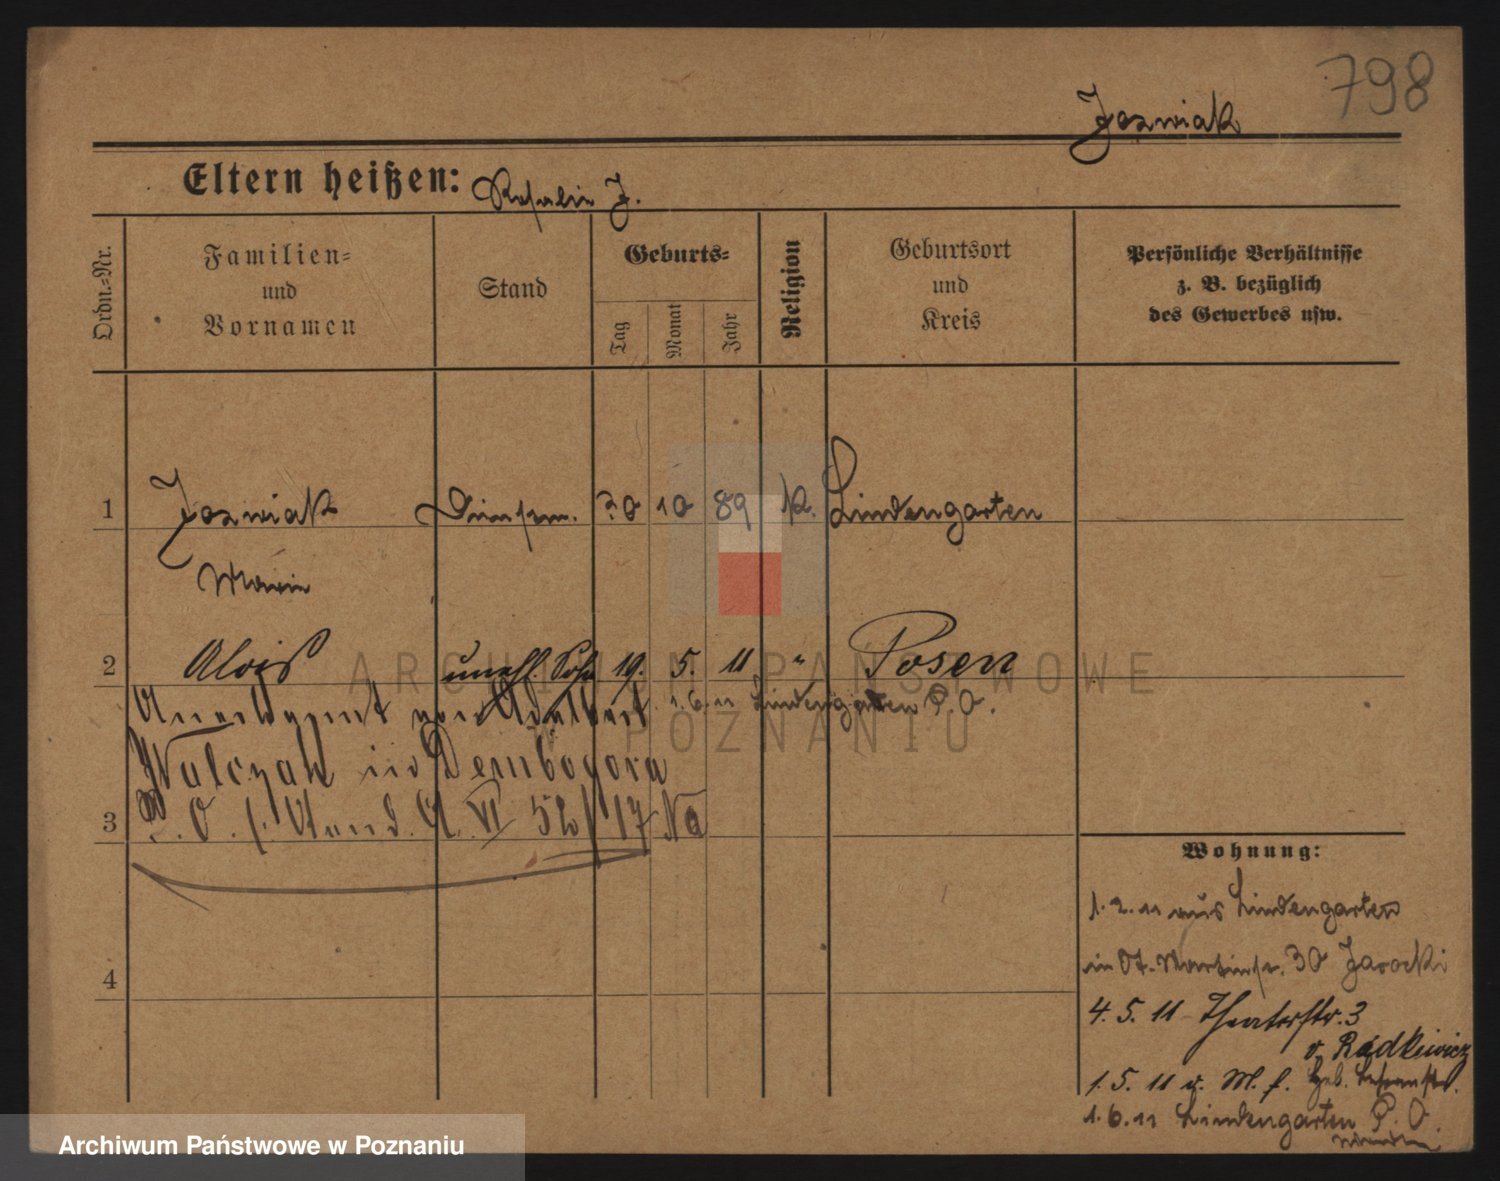 798
Jozwiak
Eltern heißen: Rosalie J.
Ordn.-Nr.
Familien-
und
Vornamen
Stand
Geburts-
Tag
Monat
Jahr
Religion
Geburtsort
und
Kreis
Persönliche Verhältnisse
z. B. bezüglich
des Gewerbes usw.
1 Jozwiak Dienstm. 20 10 89 K. Lindengarten
Maria
2 Alois unehl. Sohn 19. 5. 11 " Posen
Anerkannt von Adalbert 1.6.11 Lindengarten P. O.
Walczak in Dembogora
P. O. f. Stand. A. VI 17 Na
3
Wohnung:
1.2.11 aus Lindengarten
in St. Martinstr. 30 Jarocki
4
4. 5. 11 Theaterstr. 3
v. Radkiewicz
1. 5. 11 v. M. f. Geb.
1.6.11 Lindengarten P. O.
ARCHIWUM PAŃSTWOWE
W POZNANIU
Archiwum Państwowe w Poznaniu